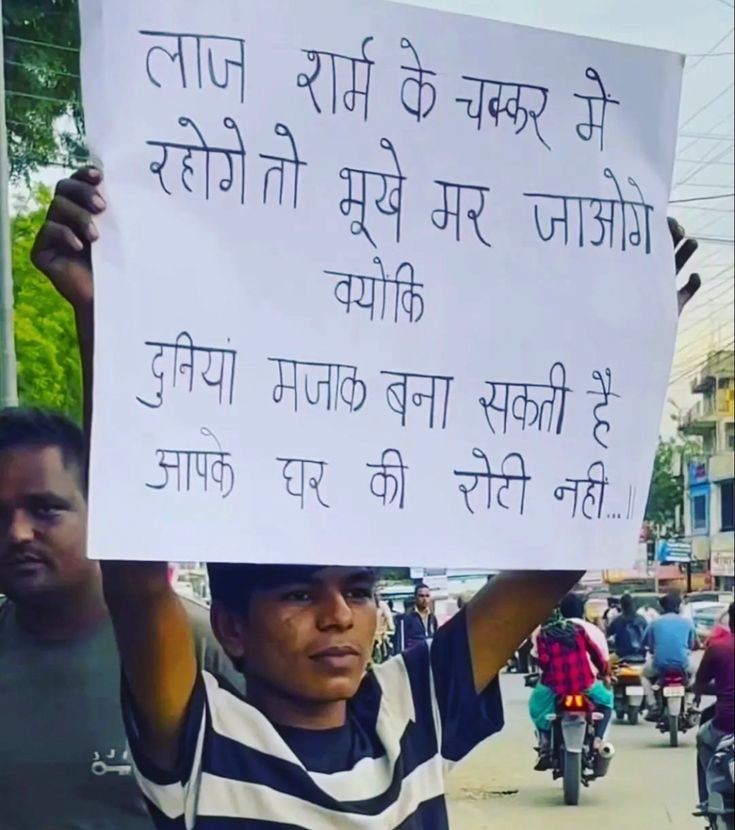 लाज शर्म के चक्कर में
रहोगे तो भूखे मर जाओगे
क्योंकि
दुनियां मजाक बना सकती है
आपके घर की रोटी नहीं...॥